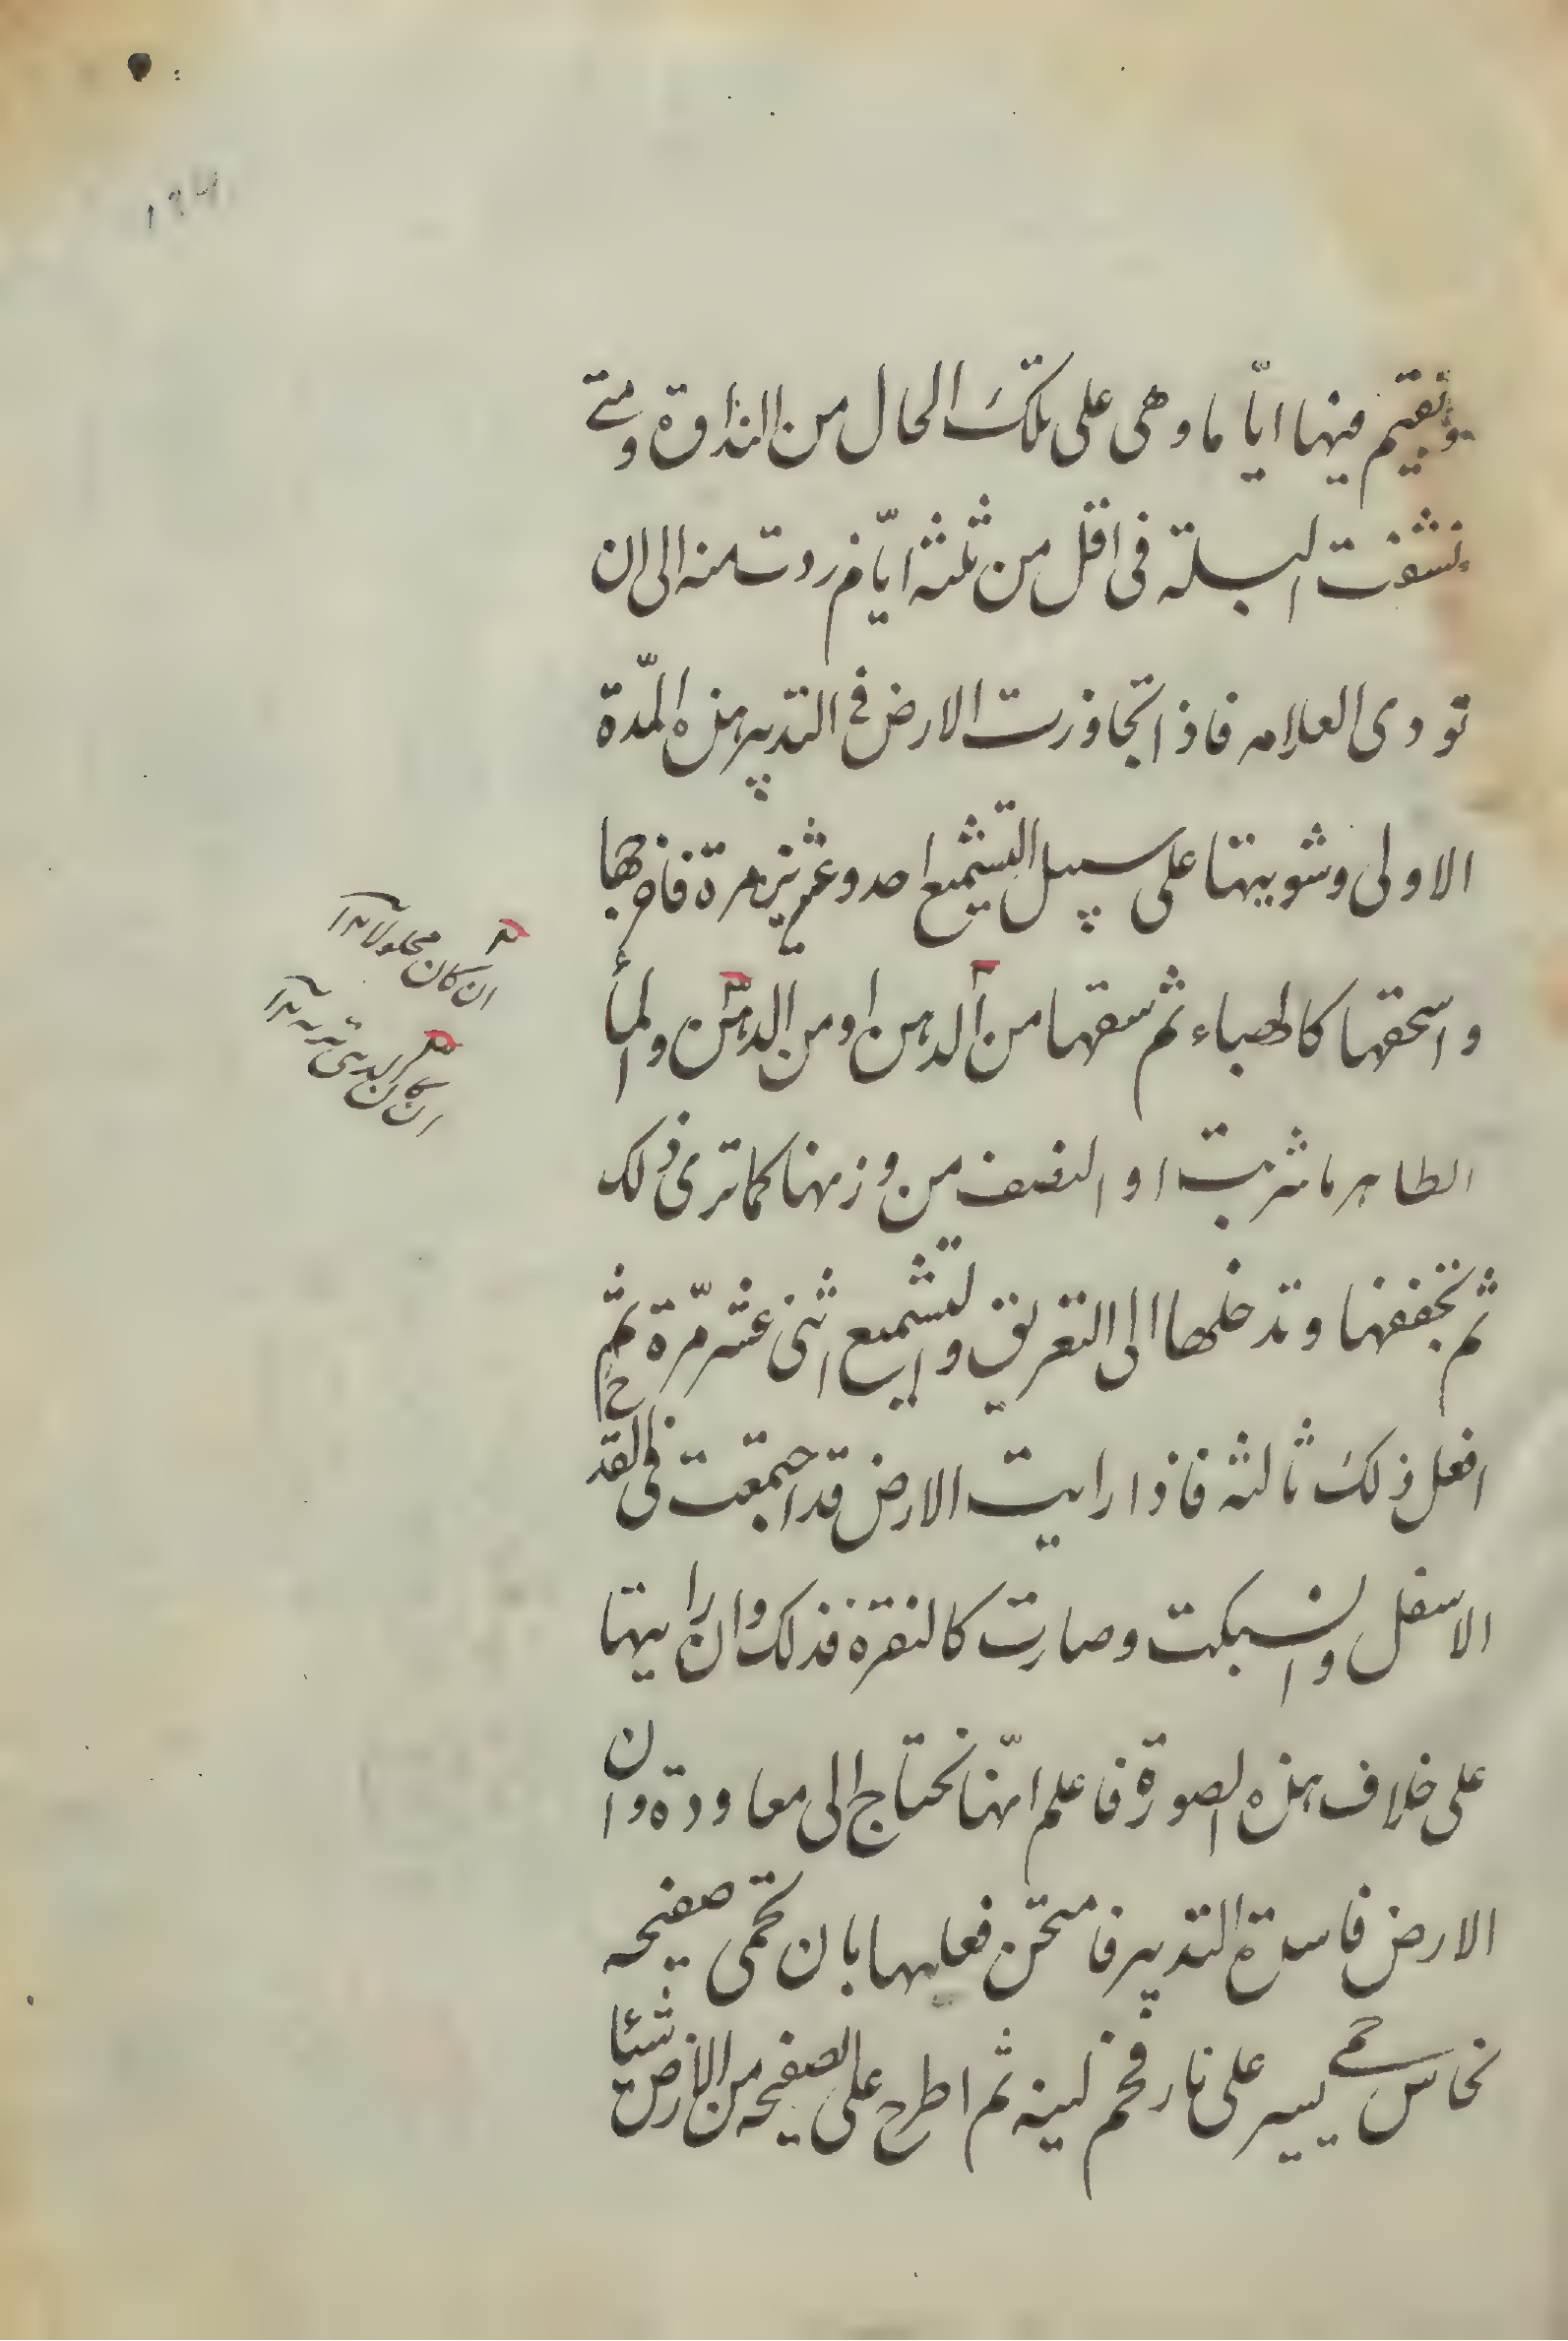 وتقيم فيها ايّاما وهى على تلك الحال من النداوة ومتے
نشفت البلة فى اقل من ثلثة ايّام ردت منه الى ان
تودى العلامه فاذا تجاوزت الارض فى التدبير هذه المدّة
الاولى وشويتها على سبيل التشميع احد وعشرين مرة فاخرجها
واسحقها كالهباء ثم سقها من الدهن او من الدهن والمأ
الطاهر ما شربت او النصف من وزنها كما ترى ذلك
ثم تجففها وتدخلها الى التعريق والتشميع اثنى عشر مّرة ثم
افعل ذلك ثالثه فاذا رايت الارض قد اجتمعت فى القدح
الاسفل وانسبكت وصارت كالنقرة فذلك وان رايتها
على خلاف هذه الصورة فاعلم انّها تحتاج الى معاودة وان
الارض فاسدة التدبير فامتحن فعليها بان تحمى صفيحه
نحاس حمى يسير على نار فحم لينه ثم اطرح على الصفيحه من الارض شيئا
ان كان محلولا
ان كان الدهن